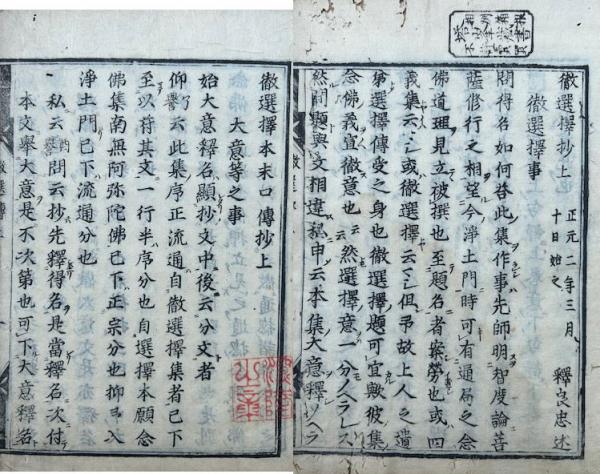 徹選擇抄上 正元二年三月十日始之 釋良忠述
徹選擇事
問得名如何答此集作事先師明智度論菩
薩修行之相望今淨土門時可有通局之念
佛道理見立被撰也至題名者案勞也或四
義集云々或徹選擇云々但予故上人之遺
弟選擇傳受之身也徹選擇題可宜歟彼集
念佛義宣徹意也云然選擇意一分ノヘラレス
然則題與文相違私申云本集大意釋ソヘラ
徹選擇本末口傳抄上
大意等之事
始大意釋名顯抄文中後云分文者
仰譽云此集序正流通自徹選擇集者已下
至以符其文一行半序分也自選擇本願念
佛集南無阿弥陀佛已下正宗分也抑引入
淨土門已下流通分也
私云問云抄先釋得名是當釋名次付
本文擧大意是不次第也可下大意釋名